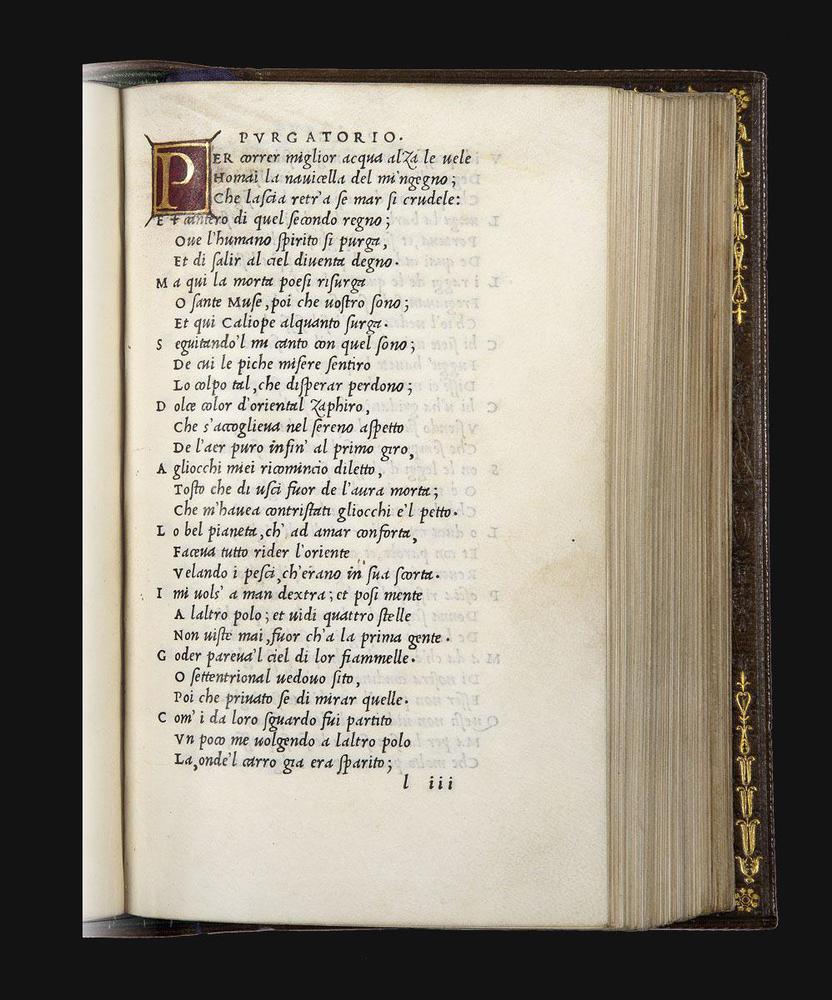 PVRGATORIO.
PER correr miglior acqua alza le uele
Homai la nauicella del mi'ngegno;
Che lascia retr'a se mar si crudele:
E t cantero di quel secondo regno;
Oue l'humano spirito si purga,
Et di salir al ciel diuenta degno.
M a qui la morta poesi risurga
O sante Muse, poi che uostro sono;
Et qui Caliope alquanto surga.
S eguitando'l mi canto con quel sono;
De cui le piche misere sentiro
Lo colpo tal, che disperar perdono;
D olce color d'oriental zaphiro,
Che s'accoglieua nel sereno aspetto
De l'aer puro infin' al primo giro,
A gliocchi miei ricomincio diletto,
Tosto che di usci fuor de l'aura morta;
Che m'hauea contristati gliocchi e'l petto.
L o bel pianeta, ch'ad amar conforta,
Faceua tutto rider l'oriente
Velando i pesci, ch'erano in sua scorta.
I mi uols' a man dextra; et posi mente
A laltro polo; et uidi quattro stelle
Non uiste mai, fuor ch'a la prima gente.
G oder pareua'l ciel di lor fiammelle.
O settentrional uedouo sito,
Poi che priuato se di mirar quelle.
C om' i da loro sguardo fui partito
Vn poco me uolgendo a laltro polo
La, onde'l carro gia era sparito;
l iii